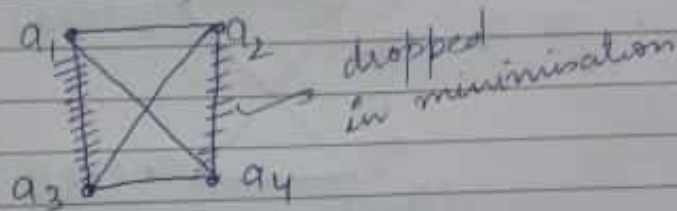 a1 a2
dropped
in minimisation
a3 a4